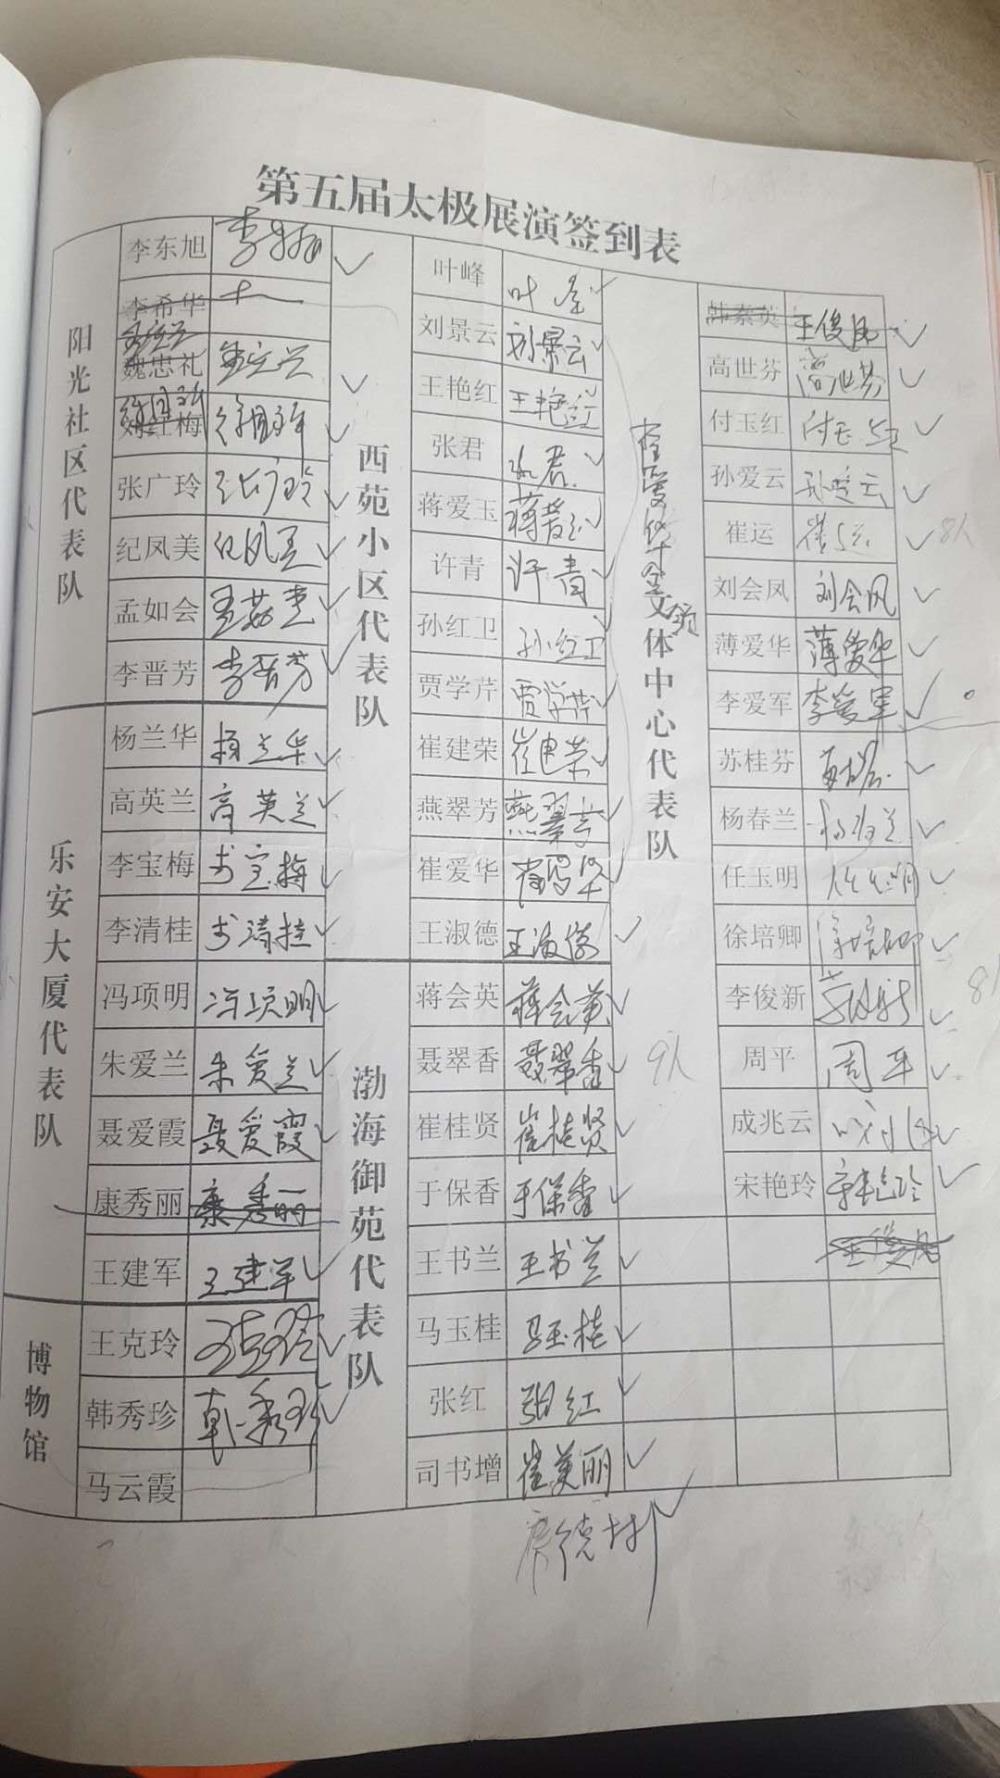 第五届太极展演签到表
阳光社区代表队
李东旭 李东旭
李希华
魏忠礼 孟宪兰
刘红梅
张广玲 张广玲
纪凤美 纪凤美
孟如会 孟茹惠
李晋芳 李晋芳
乐安大厦代表队
杨兰华 杨兰华
高英兰 高英兰
李宝梅 李宝梅
李清桂 李清桂
冯项明 冯项明
朱爱兰 朱爱兰
聂爱霞 聂爱霞
康秀丽 康秀丽
王建军 王建军
博物馆
王克玲 王克玲
韩秀珍 韩秀珍
马云霞
西苑小区代表队
叶峰 叶峰
刘景云 刘景云
王艳红 王艳红
张君 张君
蒋爱玉 蒋爱玉
许青 许青
孙红卫 孙红卫
贾学芹 贾学芹
崔建荣 崔建荣
燕翠芳 燕翠芳
崔爱华 崔爱华
王淑德 王淑德
渤海御苑代表队
蒋会英 蒋会英
聂翠香 聂翠香
崔桂贤 崔桂贤
于保香 于保香
王书兰 王书兰
马玉桂 马玉桂
张红 张红
司书增 崔美丽
9人
文体中心代表队
韩素英 王俊凤
高世芬 高世芬
付玉红 付玉红
孙爱云 孙爱云
崔运 崔运
8人
刘会凤 刘会凤
薄爱华 薄爱华
李爱军 李爱军
苏桂芬 苏桂芬
杨春兰 杨春兰
任玉明 任玉明
徐培卿 徐培卿
李俊新 李俊新
8人
周平 周平
成兆云
宋艳玲 宋艳玲
王俊凤